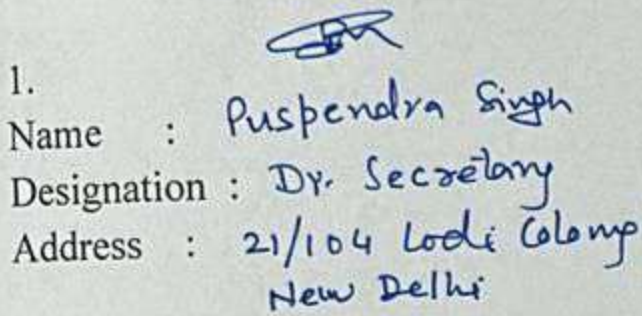 1.
Name : Puspendra Singh
Designation : Dy. Secretary
Address : 21/104 Lodi Colony
New Delhi